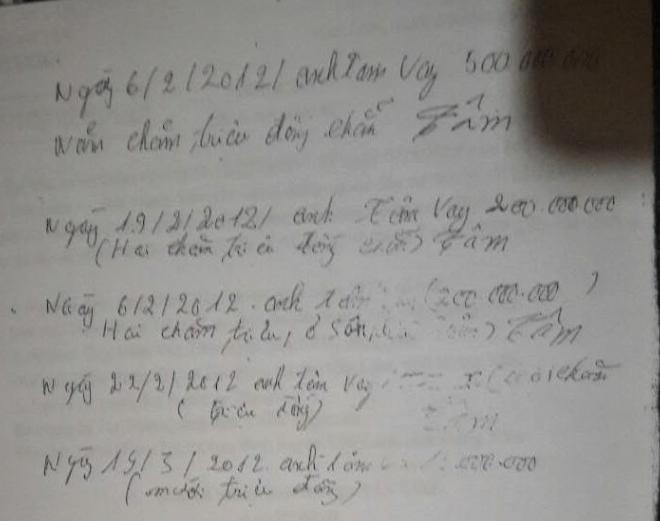 Ngày 6/2/2012/ anh Tâm Vay 500.000.000
Năm chăm triệu đồng chẵn Tâm
Ngày 19/2/2012/ anh Tâm Vay 200.000.000
(Hai chăm triệu đồng chẵn) Tâm
Ngày 6/2/2012. anh Tâm (200.000.000)
Hai chăm triệu, Tâm
Ngày 22/2/2012 anh Tâm Vay chăm
(triệu đồng) Tâm
Ngày 15/3/2012. anh Tâm .000.000
(mười triệu đồng)